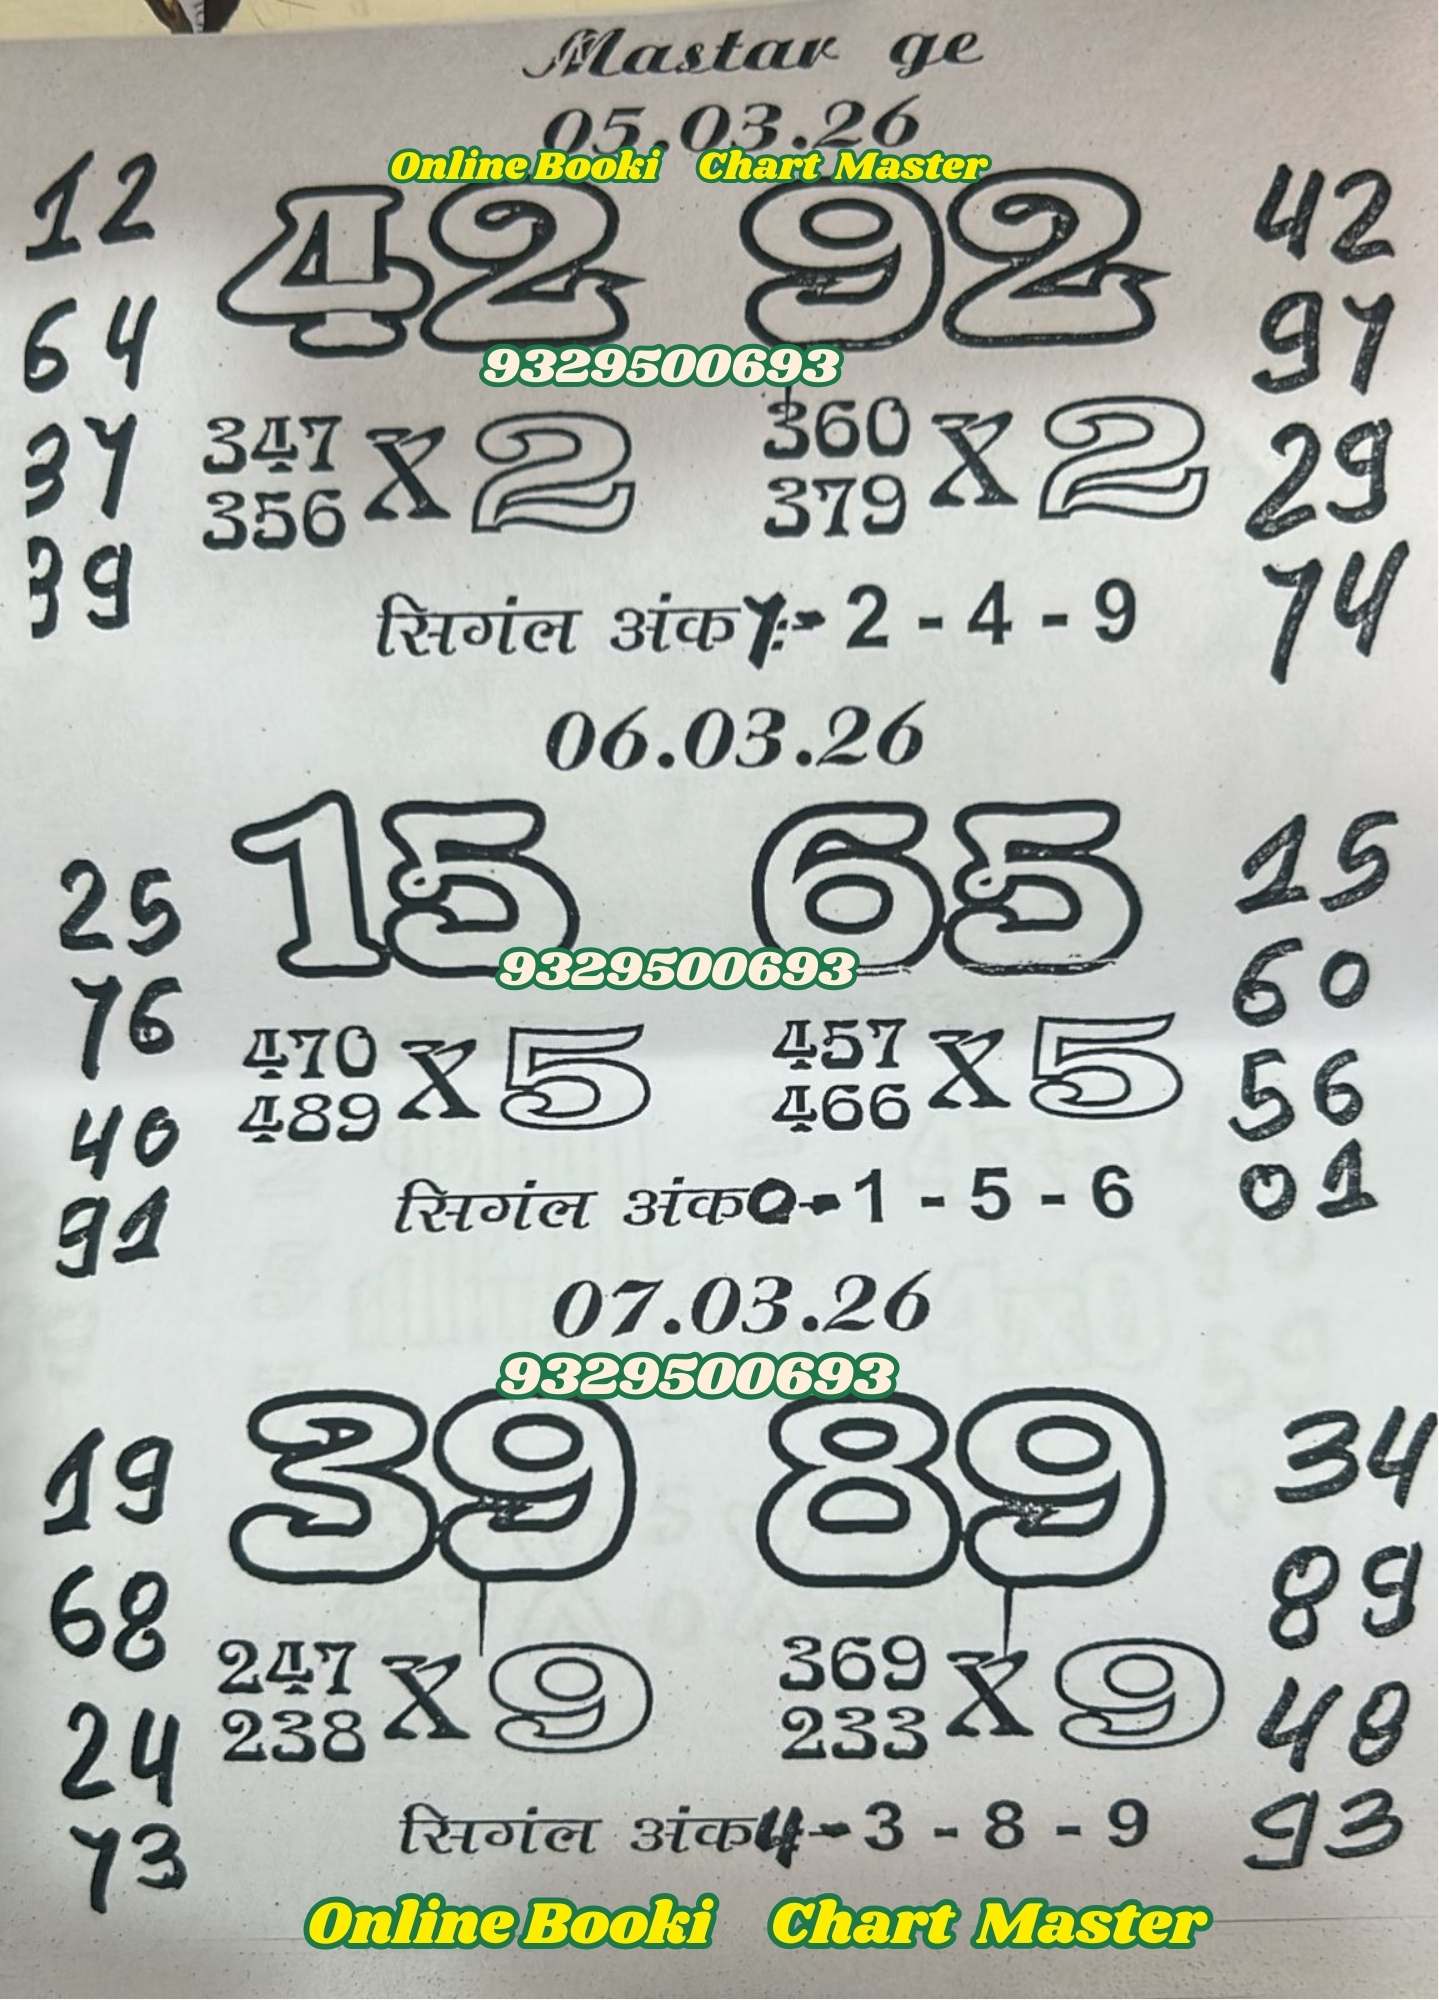 Mastar ge
05.03.26
Online Booki Chart Master
12 42 92 42
64 97
9329500693
37 347 X 2 360 X 2 29
356 379
39 74
सिगंल अंक 7:- 2 - 4 - 9
06.03.26
15 65 15
25
9329500693 60
76
470 X 5 457 X 5 56
489 466
40
सिगंल अंक 0-1 - 5 - 6 01
91
07.03.26
9329500693
19 39 89 34
68 89
247 X 9 369 X 9 48
238 233
24
सिगंल अंक 4-3 - 8 - 9 93
73
Online Booki Chart Master